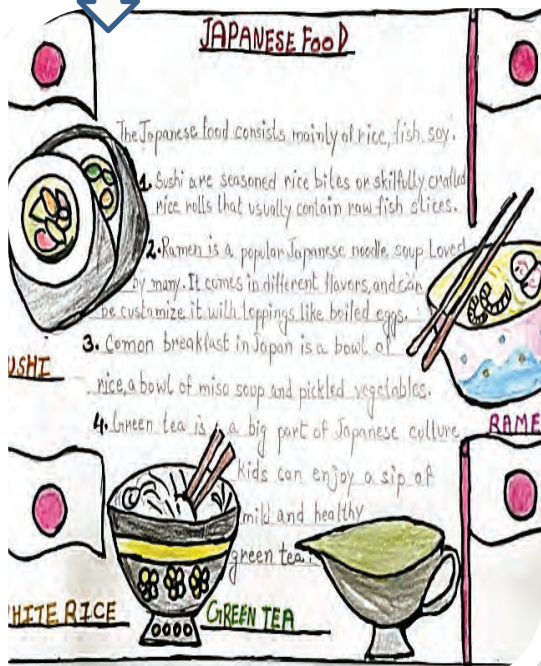 JAPANESE FOOD
The Japanese food consists mainly of rice, fish, soy.
1. Sushi are seasoned rice bites or skilfully crafted
rice rolls that usually contain raw fish slices.
2. Ramen is a popular Japanese noodle soup Loved
by many. It comes in different flavors, and can
be custumize it with toppings like boiled eggs.
3. Comon breakfast in Japan is a bowl of
USHI
rice, a bowl of miso soup and pickled vegetables.
4. Green tea is a big part of Japanese culture
RAME
kids can enjoy a sip of
mild and healthy
green tea.
HITE RICE
GREEN TEA